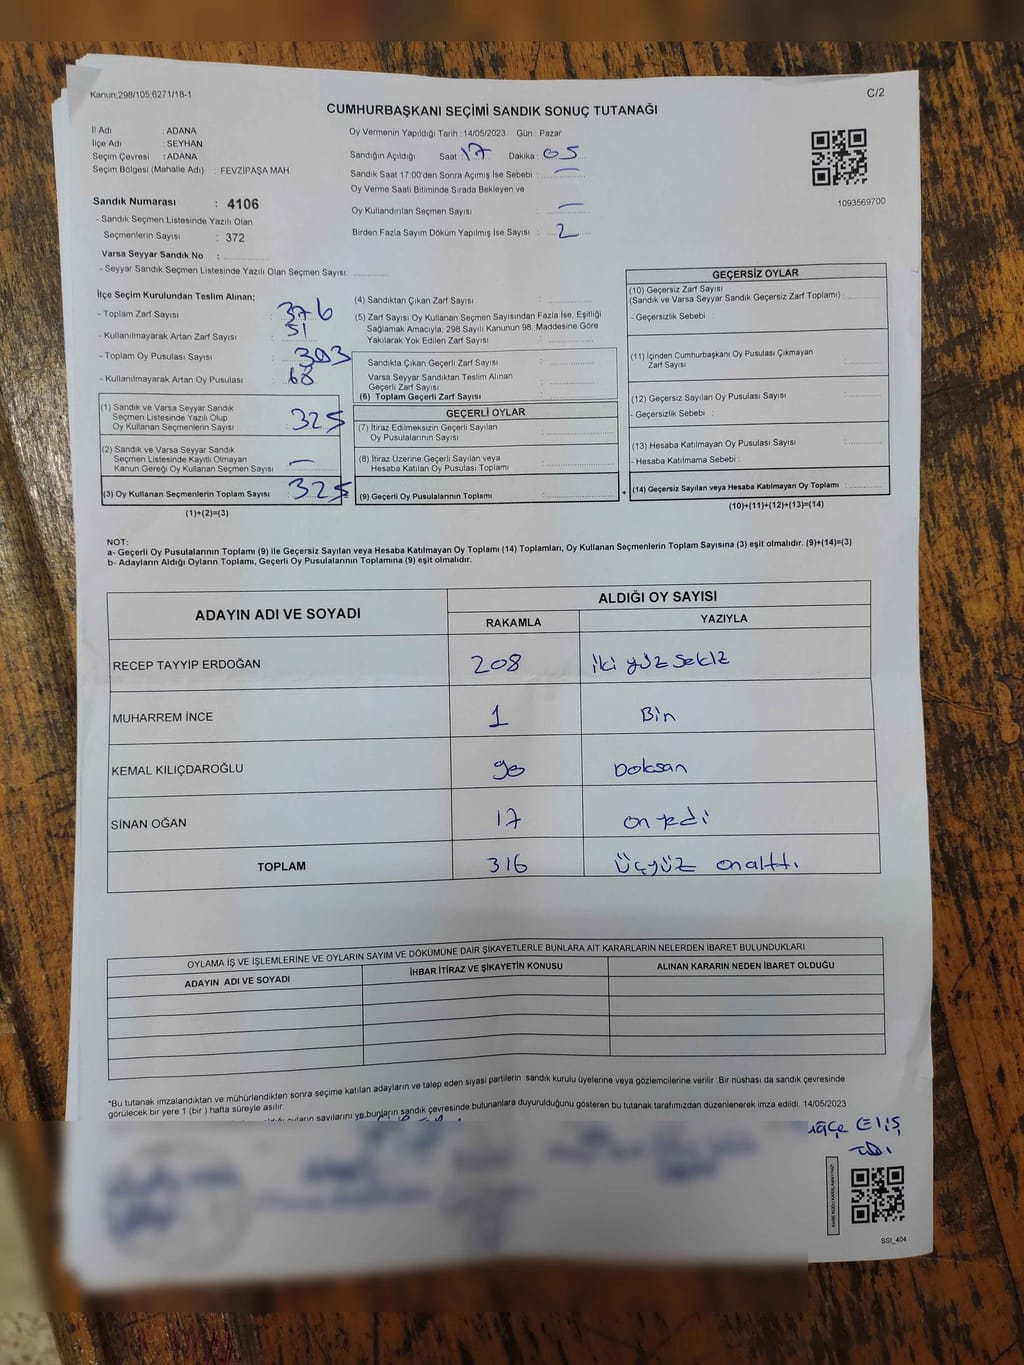 Kanun;298/105;6271/18-1
C/2
CUMHURBAŞKANI SEÇİMİ SANDIK SONUÇ TUTANAĞI
İl Adı : ADANA
İlçe Adı : SEYHAN
Seçim Çevresi : ADANA
Seçim Bölgesi (Mahalle Adı) : FEVZİPAŞA MAH.
Oy Vermenin Yapıldığı Tarih :14/05/2023 Gün : Pazar
Sandığın Açıldığı Saat 17 Dakika : 05
Sandık Saat 17.00'den Sonra Açımış İse Sebebi : —
Oy Verme Saati Bitiminde Sırada Bekleyen ve
Oy Kullandırılan Seçmen Sayısı : —
Birden Fazla Sayım Döküm Yapılmış İse Sayısı : 2
1093569700
Sandık Numarası : 4106
- Sandık Seçmen Listesinde Yazılı Olan
Seçmenlerin Sayısı : 372
Varsa Seyyar Sandık No :
- Seyyar Sandık Seçmen Listesinde Yazılı Olan Seçmen Sayısı:
İlçe Seçim Kurulundan Teslim Alınan;
- Toplam Zarf Sayısı : 376
- Kullanılmayarak Artan Zarf Sayısı : 51
- Toplam Oy Pusulası Sayısı : 393
- Kullanılmayarak Artan Oy Pusulası : 68
(1) Sandık ve Varsa Seyyar Sandık
Seçmen Listesinde Yazılı Olup
Oy Kullanan Seçmenlerin Sayısı : 325
(2) Sandık ve Varsa Seyyar Sandık
Seçmen Listesinde Kayıtlı Olmayan
Kanun Gereği Oy Kullanan Seçmen Sayısı : —
(3) Oy Kullanan Seçmenlerin Toplam Sayısı : 325
(1)+(2)=(3)
(4) Sandıktan Çıkan Zarf Sayısı :
(5) Zarf Sayısı Oy Kullanan Seçmen Sayısından Fazla İse, Eşitliği
Sağlamak Amacıyla; 298 Sayılı Kanunun 98. Maddesine Göre
Yakılarak Yok Edilen Zarf Sayısı :
Sandıkta Çıkan Geçerli Zarf Sayısı :
Varsa Seyyar Sandıktan Teslim Alınan
Geçerli Zarf Sayısı :
(6) Toplam Geçerli Zarf Sayısı :
GEÇERLİ OYLAR
(7) İtiraz Edilmeksizin Geçerli Sayılan
Oy Pusulalarının Sayısı :
(8) İtiraz Üzerine Geçerli Sayılan veya
Hesaba Katılan Oy Pusulası Toplamı :
(9) Geçerli Oy Pusulalarının Toplamı : +
GEÇERSİZ OYLAR
(10) Geçersiz Zarf Sayısı
(Sandık ve Varsa Seyyar Sandık Geçersiz Zarf Toplamı) :
- Geçersizlik Sebebi :
(11) İçinden Cumhurbaşkanı Oy Pusulası Çıkmayan
Zarf Sayısı :
(12) Geçersiz Sayılan Oy Pusulası Sayısı :
- Geçersizlik Sebebi :
(13) Hesaba Katılmayan Oy Pusulası Sayısı :
- Hesaba Katılmama Sebebi :
(14) Geçersiz Sayılan veya Hesaba Katılmayan Oy Toplamı :
(10)+(11)+(12)+(13)=(14)
NOT:
a- Geçerli Oy Pusulalarının Toplamı (9) ile Geçersiz Sayılan veya Hesaba Katılmayan Oy Toplamı (14) Toplamları, Oy Kullanan Seçmenlerin Toplam Sayısına (3) eşit olmalıdır. (9)+(14)=(3)
b- Adayların Aldığı Oyların Toplamı, Geçerli Oy Pusulalarının Toplamına (9) eşit olmalıdır.
ADAYIN ADI VE SOYADI
ALDIĞI OY SAYISI
RAKAMLA YAZIYLA
RECEP TAYYİP ERDOĞAN 208 iki yüz sekiz
MUHARREM İNCE 1 Bin
KEMAL KILIÇDAROĞLU 90 Doksan
SİNAN OĞAN 17 on yedi
TOPLAM 316 üçyüz onaltı
OYLAMA İŞ VE İŞLEMLERİNE VE OYLARIN SAYIM VE DÖKÜMÜNE DAİR ŞİKAYETLERLE BUNLARA AİT KARARLARIN NELERDEN İBARET BULUNDUKLARI
ADAYIN ADI VE SOYADI İHBAR İTİRAZ VE ŞİKAYETİN KONUSU ALINAN KARARIN NEDEN İBARET OLDUĞU
*Bu tutanak imzalandıktan ve mühürlendikten sonra seçime katılan adayların ve talep eden siyasi partilerin sandık kurulu üyelerine veya gözlemcilerine verilir .Bir nüshası da sandık çevresinde
görülecek bir yere 1 (bir ) hafta süreyle asılır.
oyların sayılarını ve bunların sandık çevresinde bulunanlara duyurulduğunu gösteren bu tutanak tarafımızdan düzenlenerek imza edildi. 14/05/2023
SSI_404